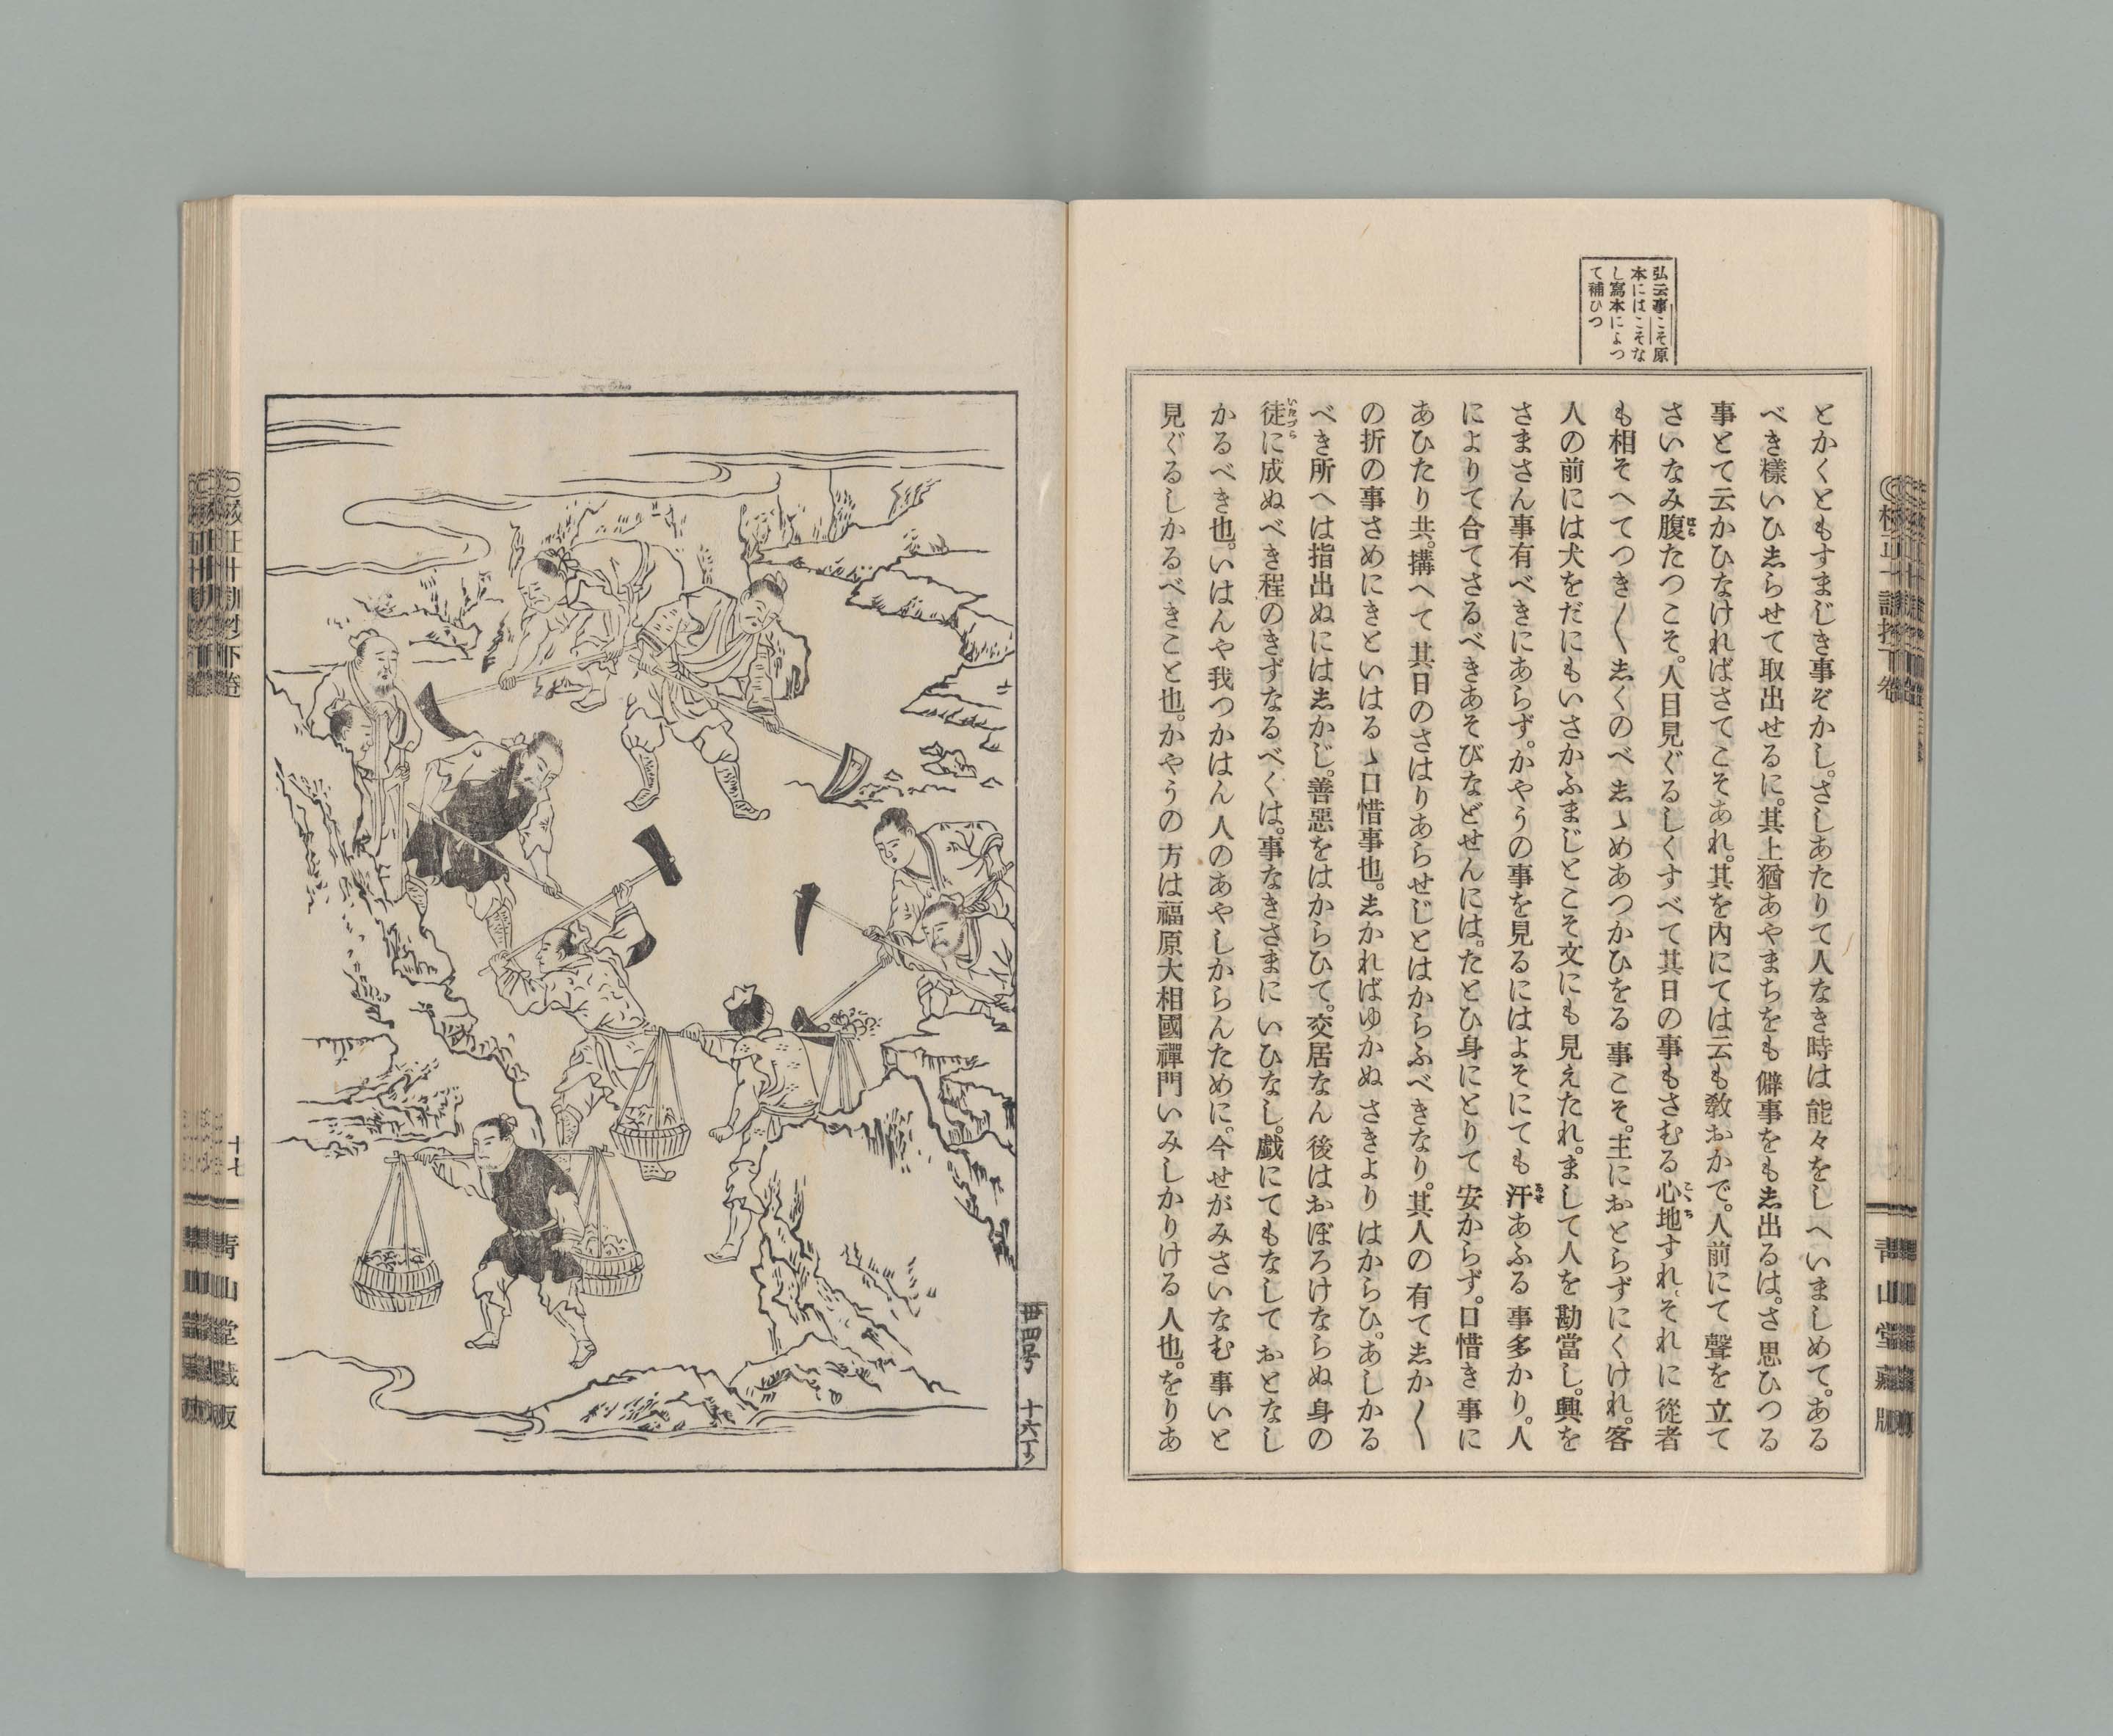 弘云事こそ原
本にはこそな
し寫本によつ
て補ひつ
とかくともすまじき事ぞかし。さしあたりて人なき時は能々をしへいましめて。ある
べき樣いひゑらせて取出せるに。其上猶あやまちをも僻事をも志出るは。さ思ひつる
事とて云かひなければさてこそあれ。其を內にては云も敎おかで。人前にて聲を立て
さいなみ腹たつこそ。人目見ぐるしくすべて其日の事もさむる心地すれ。それに從者
も相そへてつき〳〵志くのべ志ゝめあつかひをる事こそ。主におとらずにくけれ。客
人の前には犬をだにもいさかふまじとこそ文にも見えたれ。まして人を勘當し。興を
さまさん事有べきにあらず。かやうの事を見るにはよそにても汗あふる事多かり。人
によりて合てさるべきあそびなどせんには。たとひ身にとりて安からず。口惜き事に
あひたり共。搆へて其日のさはりあらせじとはからふべきなり。其人の有て志か〳〵
の折の事さめにきといはるゝ口惜事也。志かればゆかぬさきよりはからひ。あしかる
べき所へは指出ぬには志かじ。善惡をはからひて。交居なん後はおぼろけならぬ身の
徒に成ぬべき程のきずなるべくは。事なきさまにいひなし。戲にてもなしておとなし
かるべき也。いはんや我つかはん人のあやしからんために。今せがみさいなむ事いと
見ぐるしかるべきこと也。かやうの方は福原大相國禪門いみしかりける人也。をりあ
はら
こゝち
あせ
いたづら
青山堂藏版
卅四号 十六丁ノ
十七
青山堂藏版